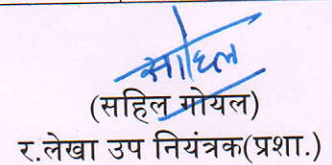 साहिल
(सहिल गोयल)
र.लेखा उप नियंत्रक(प्रशा.)